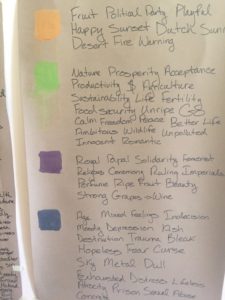 Fruit Political Party Playful
Happy Sunset Dutch Sun
Desert Fire Warning
Nature Prosperity Acceptance
Productivity $ Agriculture
Sustainability Life Fertility
Food security Unripe
Calm Freedom Peace Better Life
Ambitious Wildlife Unpolluted
Innocent Romantic
Royal Papal Solidarity Feminist
Religious Ceremony Healing Imperial
Perfume Ripe Fruit Beauty
Strong Grapes → Wine
Age Mixed Feelings Indecision
Moody Depression
Destination Trauma Bleak
Hopeless Fear Curse
Sky Metal Dull
Exhausted Distress Lifeless
Atrocity Prison Sexual Abuse
Concrete